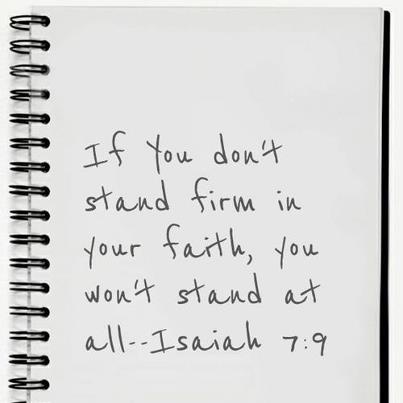 If You don't
stand firm in
your faith, you
won't stand at
all--Isaiah 7:9